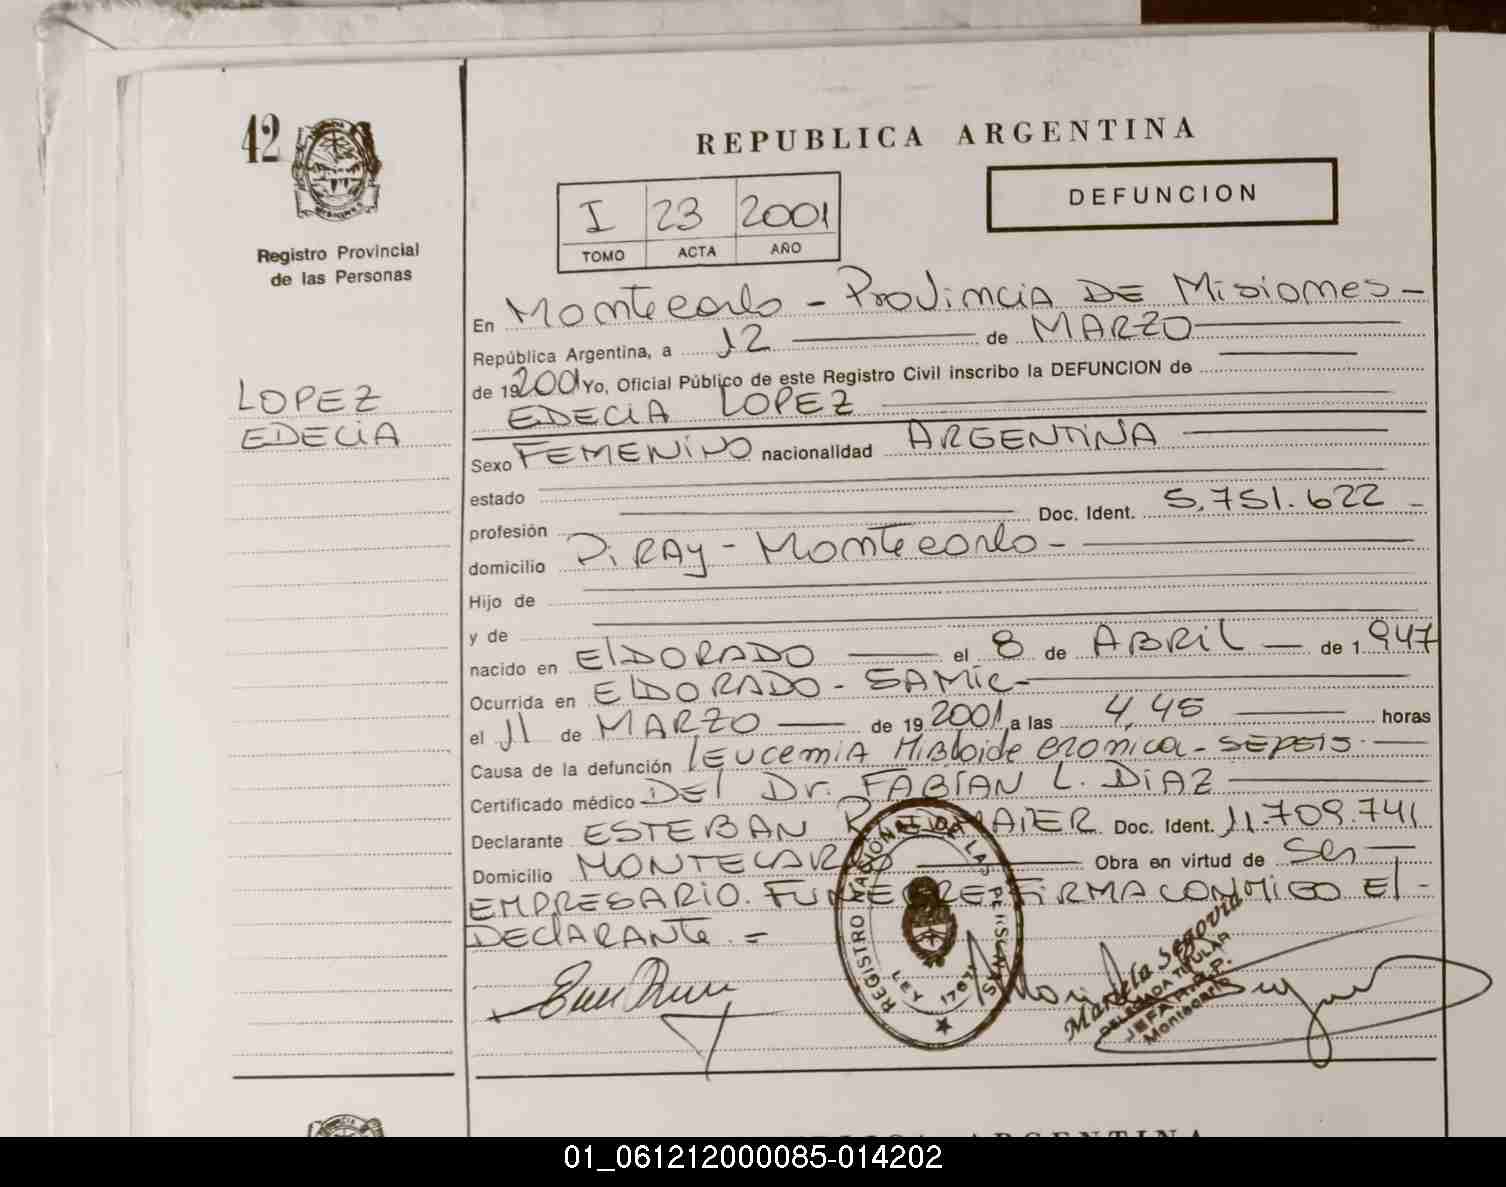 42
MISIONES
Registro Provincial
de las Personas
LOPEZ
EDECIA
REPUBLICA ARGENTINA
I 23 2001
TOMO ACTA AÑO
DEFUNCION
En Montecarlo - Provincia DE Misiones -
República Argentina, a 12 de MARZO
de 19 2001 Yo, Oficial Público de este Registro Civil inscribo la DEFUNCION de
EDECIA LOPEZ
Sexo FEMENINO nacionalidad ARGENTINA
estado
profesión Doc. Ident. 5.751.622 -
domicilio PiRAY - Montecarlo -
Hijo de
y de
nacido en ElDORADO el 8 de ABRIL de 1 947
Ocurrida en ElDORADO - SAMIC -
el 11 de MARZO de 19 2001 a las 4,45 horas
Causa de la defunción leucemia Mieloide cronica - SEPSIS -
Certificado médico DEl Dr. FABIAN L. DiAZ
Declarante ESTEBAN Doc. Ident. 11.709.741
Domicilio MONTECARLO Obra en virtud de Ser
EMPRESARIO. FUNEBRE FiRMA CONMIGO El -
DEClARANTE. =
REGISTRO NACIONAL DE LAS PERSONAS
LEY 17671
Marcela SEGOVIA
DELEGADA TITULAR
JEFA R.P.P.
Montecarlo
REPUBLICA ARGENTINA
01_061212000085-014202